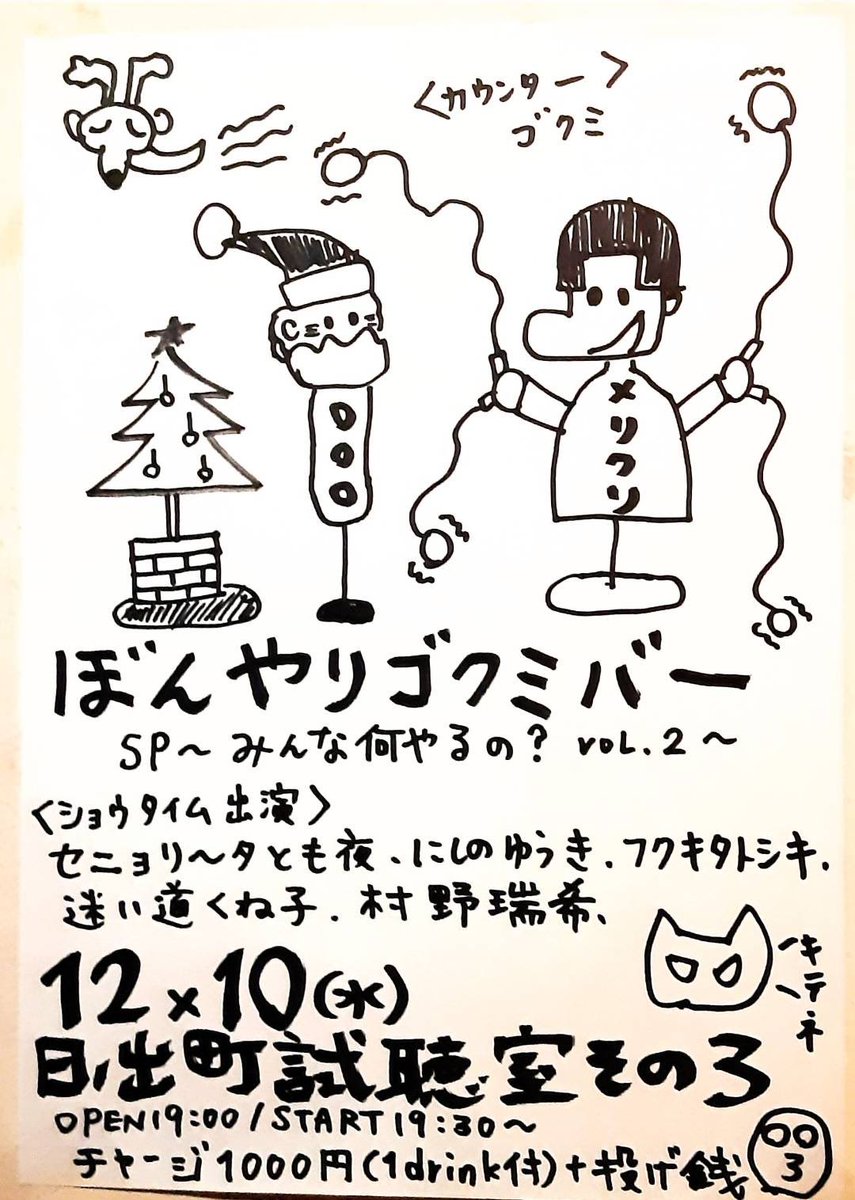 <カウンター>
ゴクミ
メリクリ
ぼんやりゴクミバー
SP〜みんな何やるの? VOL.2〜
<ショウタイム出演>
セニョリ〜タとも夜、にしのゆうき、フクキタトシキ、
迷い道くね子、村野瑞希、
キテネ
12×10(水)
日ノ出町試聴室その3
OPEN19:00/START19:30〜
チャージ1000円(1drink付)+投げ銭
3